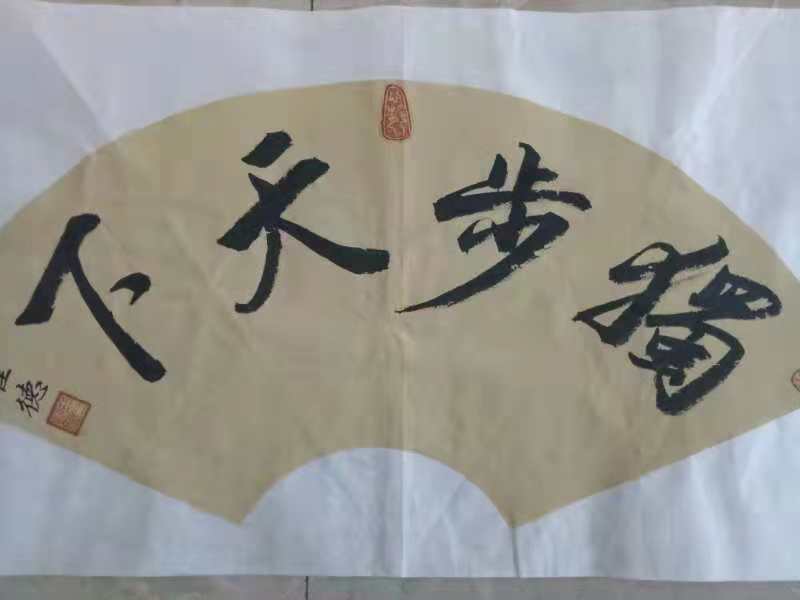 獨步天下
德